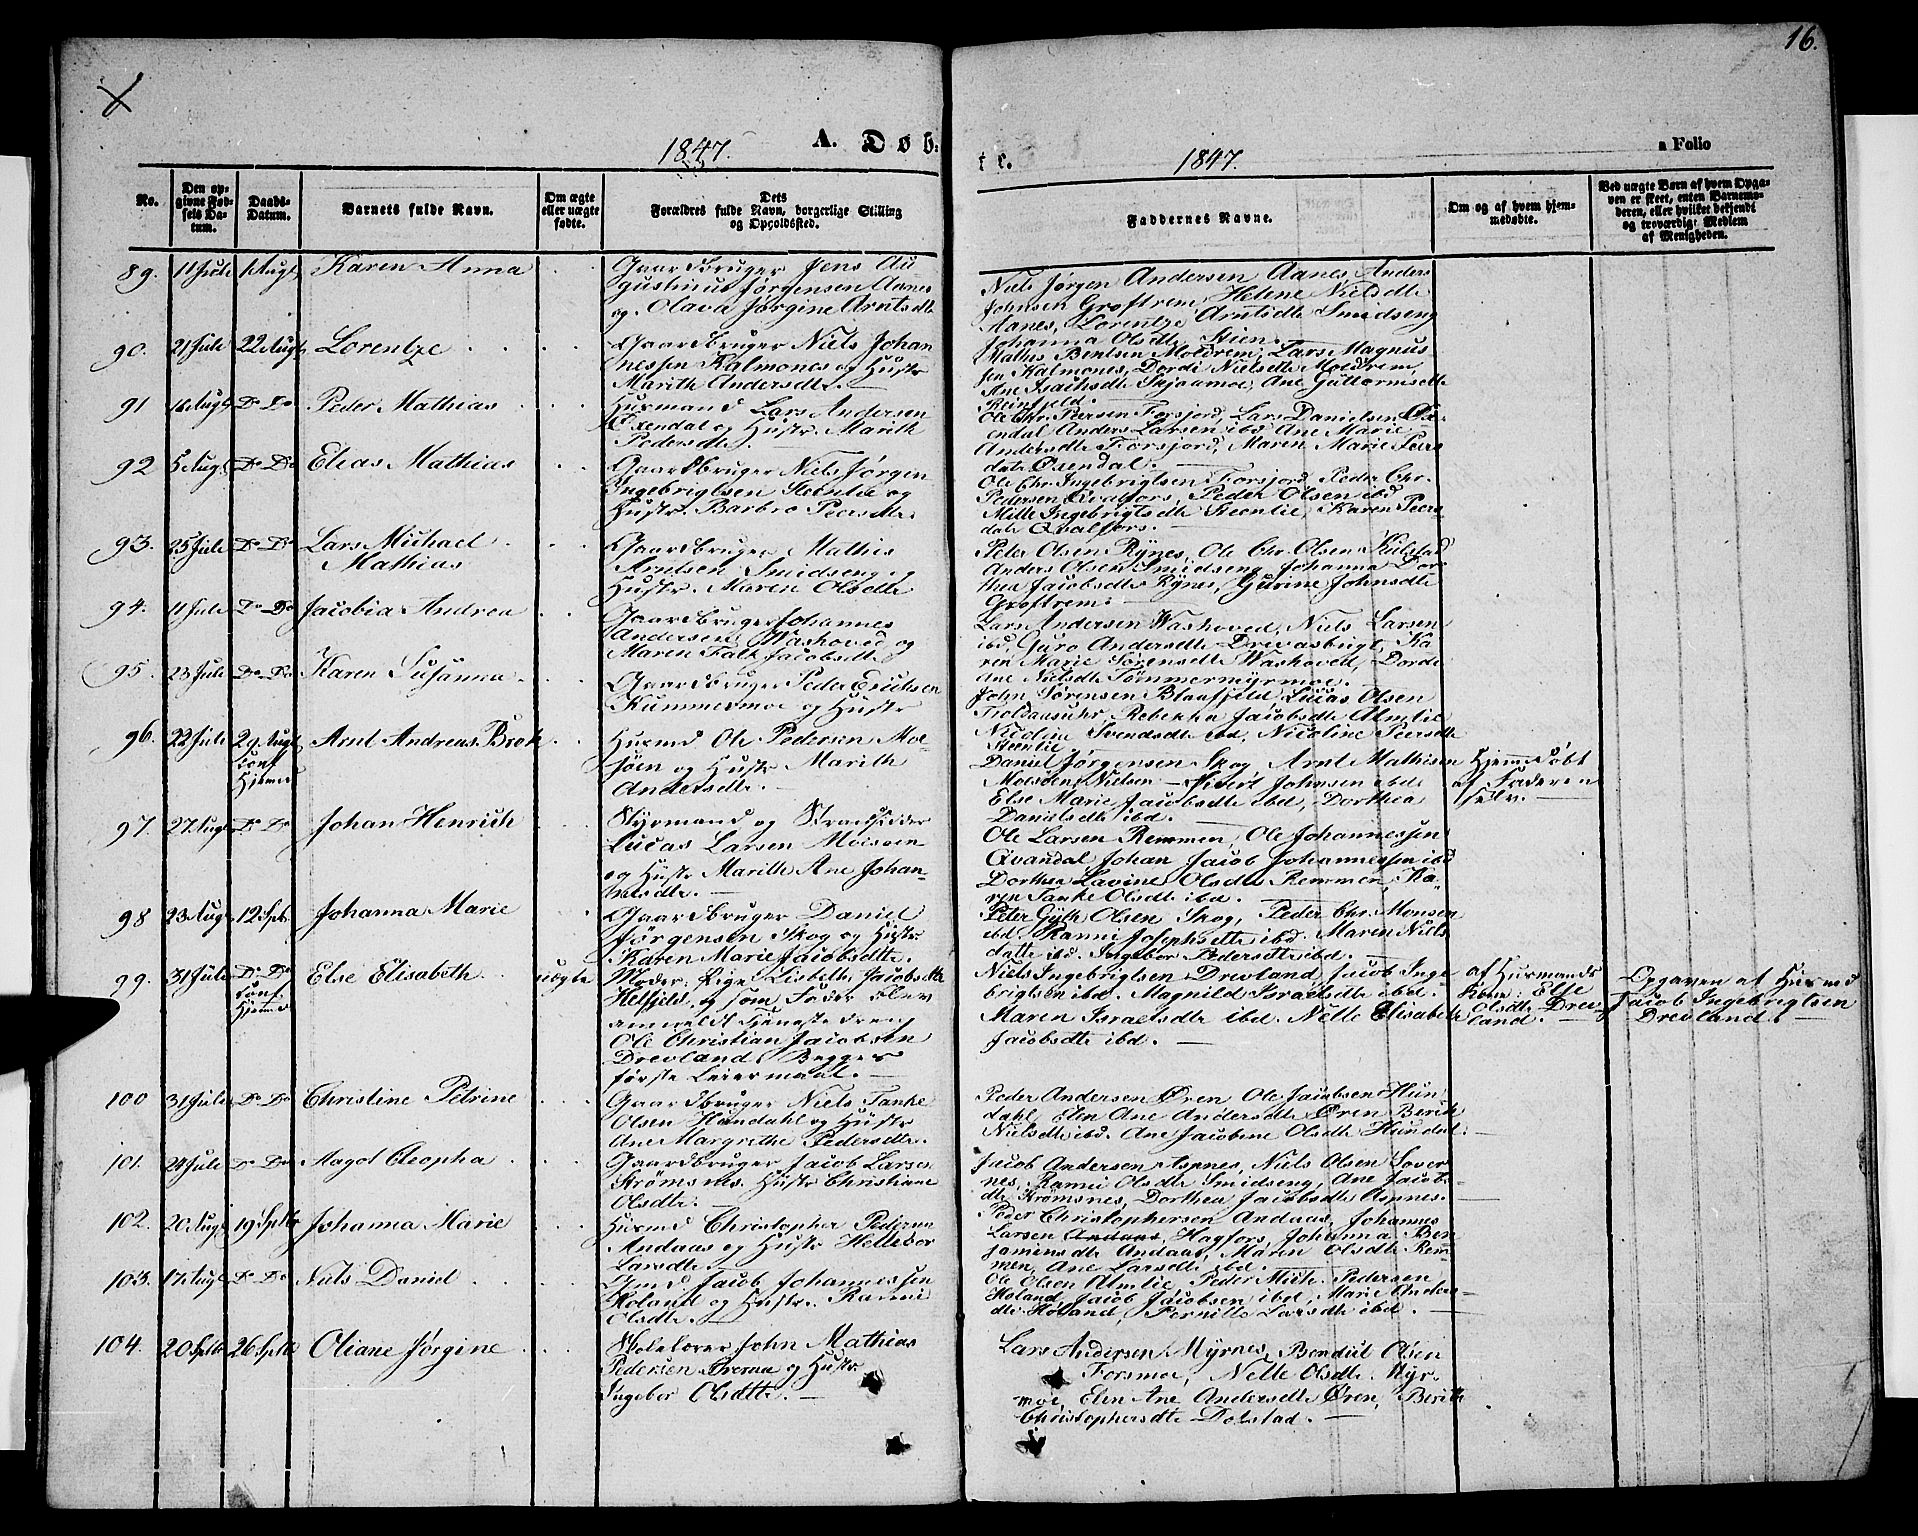 16.
1847.
A. Døb-
te.
1847.
a Folio
No.
Den op-
givne Fød-
sels Da-
tum.
Daabs-
Datum.
Barnets fulde Navn.
Om ægte
eller uægte
fødte.
Dets
Forældres fulde Navn, borgerlige Stilling
og Opholdsted.
Faddernes Navne.
Om og af hvem hjem-
medøbte.
Ved uægte Børn af hvem Opga-
ven er skeet, enten Barnemo-
deren, eller hvilket bekjendt
og troværdigt Medlem
af Menigheden.
89. 11 Juli 1 Augt Karen Anna
Gaardbruger Jens Au
gustinus Jørgensen Aanes
og Olava Jørgine Arntsdtr
Niels Jørgen Andersen Aanes, Anders
Johnsen Groftrem, Helene Nielsdtr
Aanes, Lorentze Arntsdtr Smidseng
Johanna Olsdtr Stien.
90. 21 Juli 22 Augt Lorentze
Gaardbruger Niels Johan
nessen Kalmones og Hustr
Marith Andersdtr.
Mathis Bentsen Moldrem, Lars Magnus-
sen Kalmones, Dordi Nielsdtr Moldrem,
Ane Isachsdtr Skjoumoe, Ane Guttormsdtr
Reinfjeld.
91 16 Augt Do Do Peder Mathias
Husmand Lars Andersen
Oxendal og Hustr. Marith
Pedersdtr.
Ole Chr. Peersen Forsjord, Lars Danielsen Ox-
endal Anders Larsen ibd Ane Marie
Andersdtr Forsjord, Maren Marie Peers
datr Oxendal.
92 5 Augt Do Do Elias Mathias
Gaardbruger Niels Jørgen
Ingebrigtsen Steenlie og
Hustr. Barbro Peersdtr.
Ole Chr. Ingebrigtsen Forsjord, Peder Chr.
Pedersen Qvalfors, Peder Olsen ibd
Mille Ingebrigtsdtr Steenlie, Karen Peers
datr Qvalfors.
93. 25 Juli Do Do Lars Michael
Mathias
Gaardbruger Mathis
Arntsen Smidseng og
Hustr. Maren Olsdtr
Peder Olsen Rynes, Ole Chr. Olsen Kulstad
Anders Olsen Smidseng, Johanna Dor-
thea Jacobsdtr Rynes, Gurine Johnsdtr
Groftrem.
94. 11 Juli Do Do Jacobia Andrea
Gaardbruger Johannes
Andersen Washoved og
Maren Falk Jacobsdtr
Lars Andersen Washoved, Niels Larsen
ibd, Guro Andersdtr Drevasbugt, Ka
ren Marie Sørensdtr Washoved, Dorde
ane Nielsdtr Tømmermyrmoe.
95. 23 Juli Do Do Karen Susanna
Gaardbruger Peder Erichsen
Kummermoe og Hustr
John Sørensen Blaafjeld, Lucas Olsen
Troldaasuhr, Rebekka Jacobsdtr Almlie
Nicoline Svendsdtr ibd, Nicoline Peersdtr
Steenlie
96. 22 Juli 29 Augt Arnt Andreas Brok
conf
Hjemmed
Husmd Ole Pedersen Mo-
sjøen og Hustr Marith
Andersdtr.
Daniel Jørgensen Skog Arnt Mathisen
Mosøen, Nielsen Sivert Johnsen ibd
Else Marie Jacobsdtr ibd, Dorthea
Danielsdtr ibd.
Hjemmedøbt
af Faderen
selv.
97. 27 Augt Do Do Johan Henrich
Styrmand og Strandsidder
Lucas Larsen Mosøen
og Hustr Marith Ane Johan-
nesdtr.
Ole Larsen Remmen, Ole Johannessen
Qvandal Johan Jacob Johannessen ibd
Dorthea Lavine Olsdtr Remmen, Ka-
ren Tanke Olsdtr ibd.
98 23 Augt 12 Sptbr Johanna Marie
Gaardbruger Daniel
Jørgensen Skog og Hustr.
Karen Marie Jacobsdtr.
Peter Gyth Olsen Skog, Peder Chr. Monsen
ibd. Ranni Josephsdtr ibd. Maren Niels
datte ibd. Ingebor Pedersdtr ibd.
99. 31 Juli Do Do Else Elisabeth uægte
conf
Hjemmed
Moder: Pige Lisbeth Jacobsdtr
Helfjeld, og som Fader blev
anmeldt Tjenestedreng
Ole Christian Jacobsen
Drevland. Begges
første Leiermaal.
Niels Ingebrigtsen Drevland, Jacob Inge
brigtsen ibd. Magnild Israelsdtr ibd.
Maren Israelsdtr ibd. Nelle Elisabeth
Jacobsdtr ibd.
af Husmands
Kone: Else
Olsdtr Drev-
land.
Opgaven af Husmd
Jacob Ingebrigtsen
Drevland.
100 31 Juli Do Do Christine Petrine
Gaardbruger Niels Tanke
Olsen Hundahl og Hustr
Ane Margrethe Pedersdtr.
Peder Andersen Øren Ole Jacobsen Hun
dahl, Elen Ane Andersdtr Øren Berith
Nielsdtr ibd. Ane Jacobine Olsdtr Hundal.
101. 24 Juli Do Do Magol Cleopha
Gaardbruger Jacob Larsen
Strømsnes. Hustr Christiane
Olsdtr.
Jacob Andersen Aspnes, Niels Olsen Sover
nes, Ranni Olsdtr Smidseng, Ane Jacobs-
dtr Strømsnes, Dorthea Jacobsdtr Aspnes.
102. 20 Augt 19 Sptbr Johanna Marie
Husmd Christopher Pedersen
Andaas og Hustr Hellebor
Larsdtr.
Peder Christophersen Andaas, Johannes
Larsen Andaas, Hagfors, Johanna Ben
jaminsdtr Andaas, Maren Olsdtr Rem-
men, Ane Larsdtr ibd.
103. 17 Augt Do Do Niels Daniel
Gmd Jacob Johannessen
Holand og Hustr. Ranni
Olsdtr.
Ole Olsen Almlie, Peder Mich. Pedersen
Holand, Jacob Jacobsen ibd, Marie Anders
dtr Holand, Pernille Larsdtr ibd.
104. 20 Sptbr 26 Sptbr Oliane Jørgine
Skolelærer John Mathias
Pedersen og Hustr
Ingebor Olsdtr.
Lars Andersen Myrnes, Bendict Olsen
Forsmoe, Nelle Olsdtr Myr
moe, Elen Ane Andersdtr Øren, Berith
Christophersdtr Dolstad.